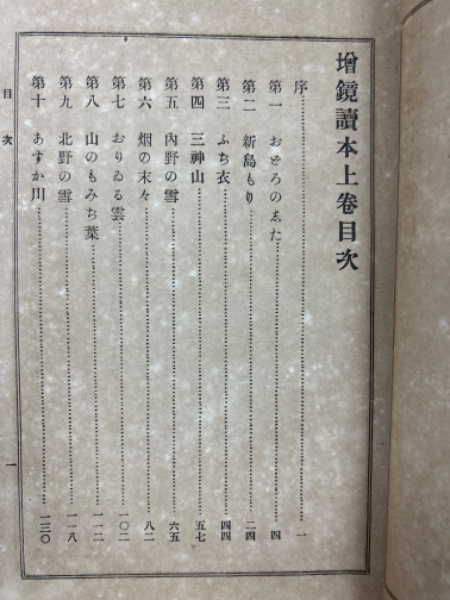 增鏡讀本上卷目次
序……一
第一 おどろのした……四
第二 新島もり……二四
第三 ふぢ衣……四四
第四 三神山……五七
第五 內野の雪……六五
第六 烟の末々……八二
第七 おりゐる雲……一〇二
第八 山のもみぢ葉……一一二
第九 北野の雪……一一八
第十 あすか川……一三〇
目次
一